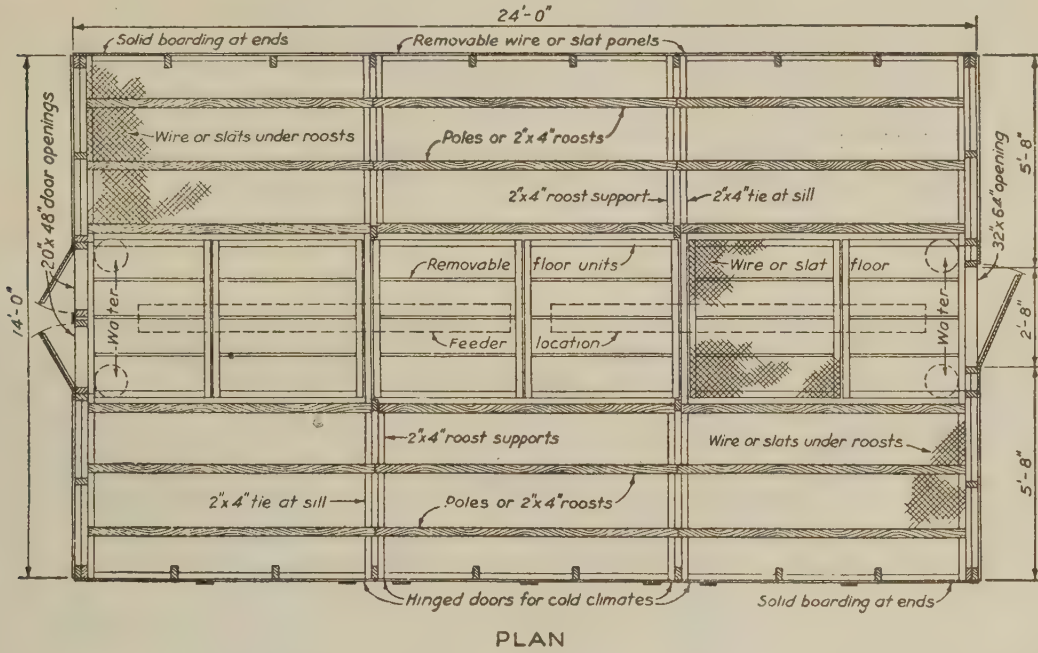 24'-0"
Solid boarding at ends
Removable wire or slat panels
Wire or slats under roosts
Poles or 2"x4" roosts
2"x4" roost support
2"x4" tie at sill
20"x 48" door openings
14'-0"
5'-8"
32"x 64" opening
Removable floor units
Wire or slat floor
Water
Water
Feeder location
2'-8"
2"x4" roost supports
Wire or slats under roosts
2"x4" tie at sill
Poles or 2"x4" roosts
5'-8"
Hinged doors for cold climates
Solid boarding at ends
PLAN